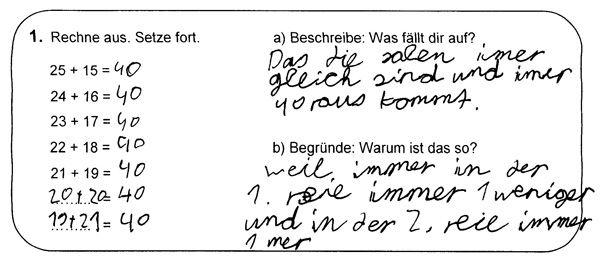 1. Rechne aus. Setze fort.
25 + 15 = 40
24 + 16 = 40
23 + 17 = 40
22 + 18 = 40
21 + 19 = 40
20 + 20 = 40
19 + 21 = 40
a) Beschreibe: Was fällt dir auf?
Das die zalen imer
gleich sind und imer
40 raus kommt.
b) Begründe: Warum ist das so?
weil immer in der
1. reie immer 1 weniger
und in der 2. reie immer
1 mer